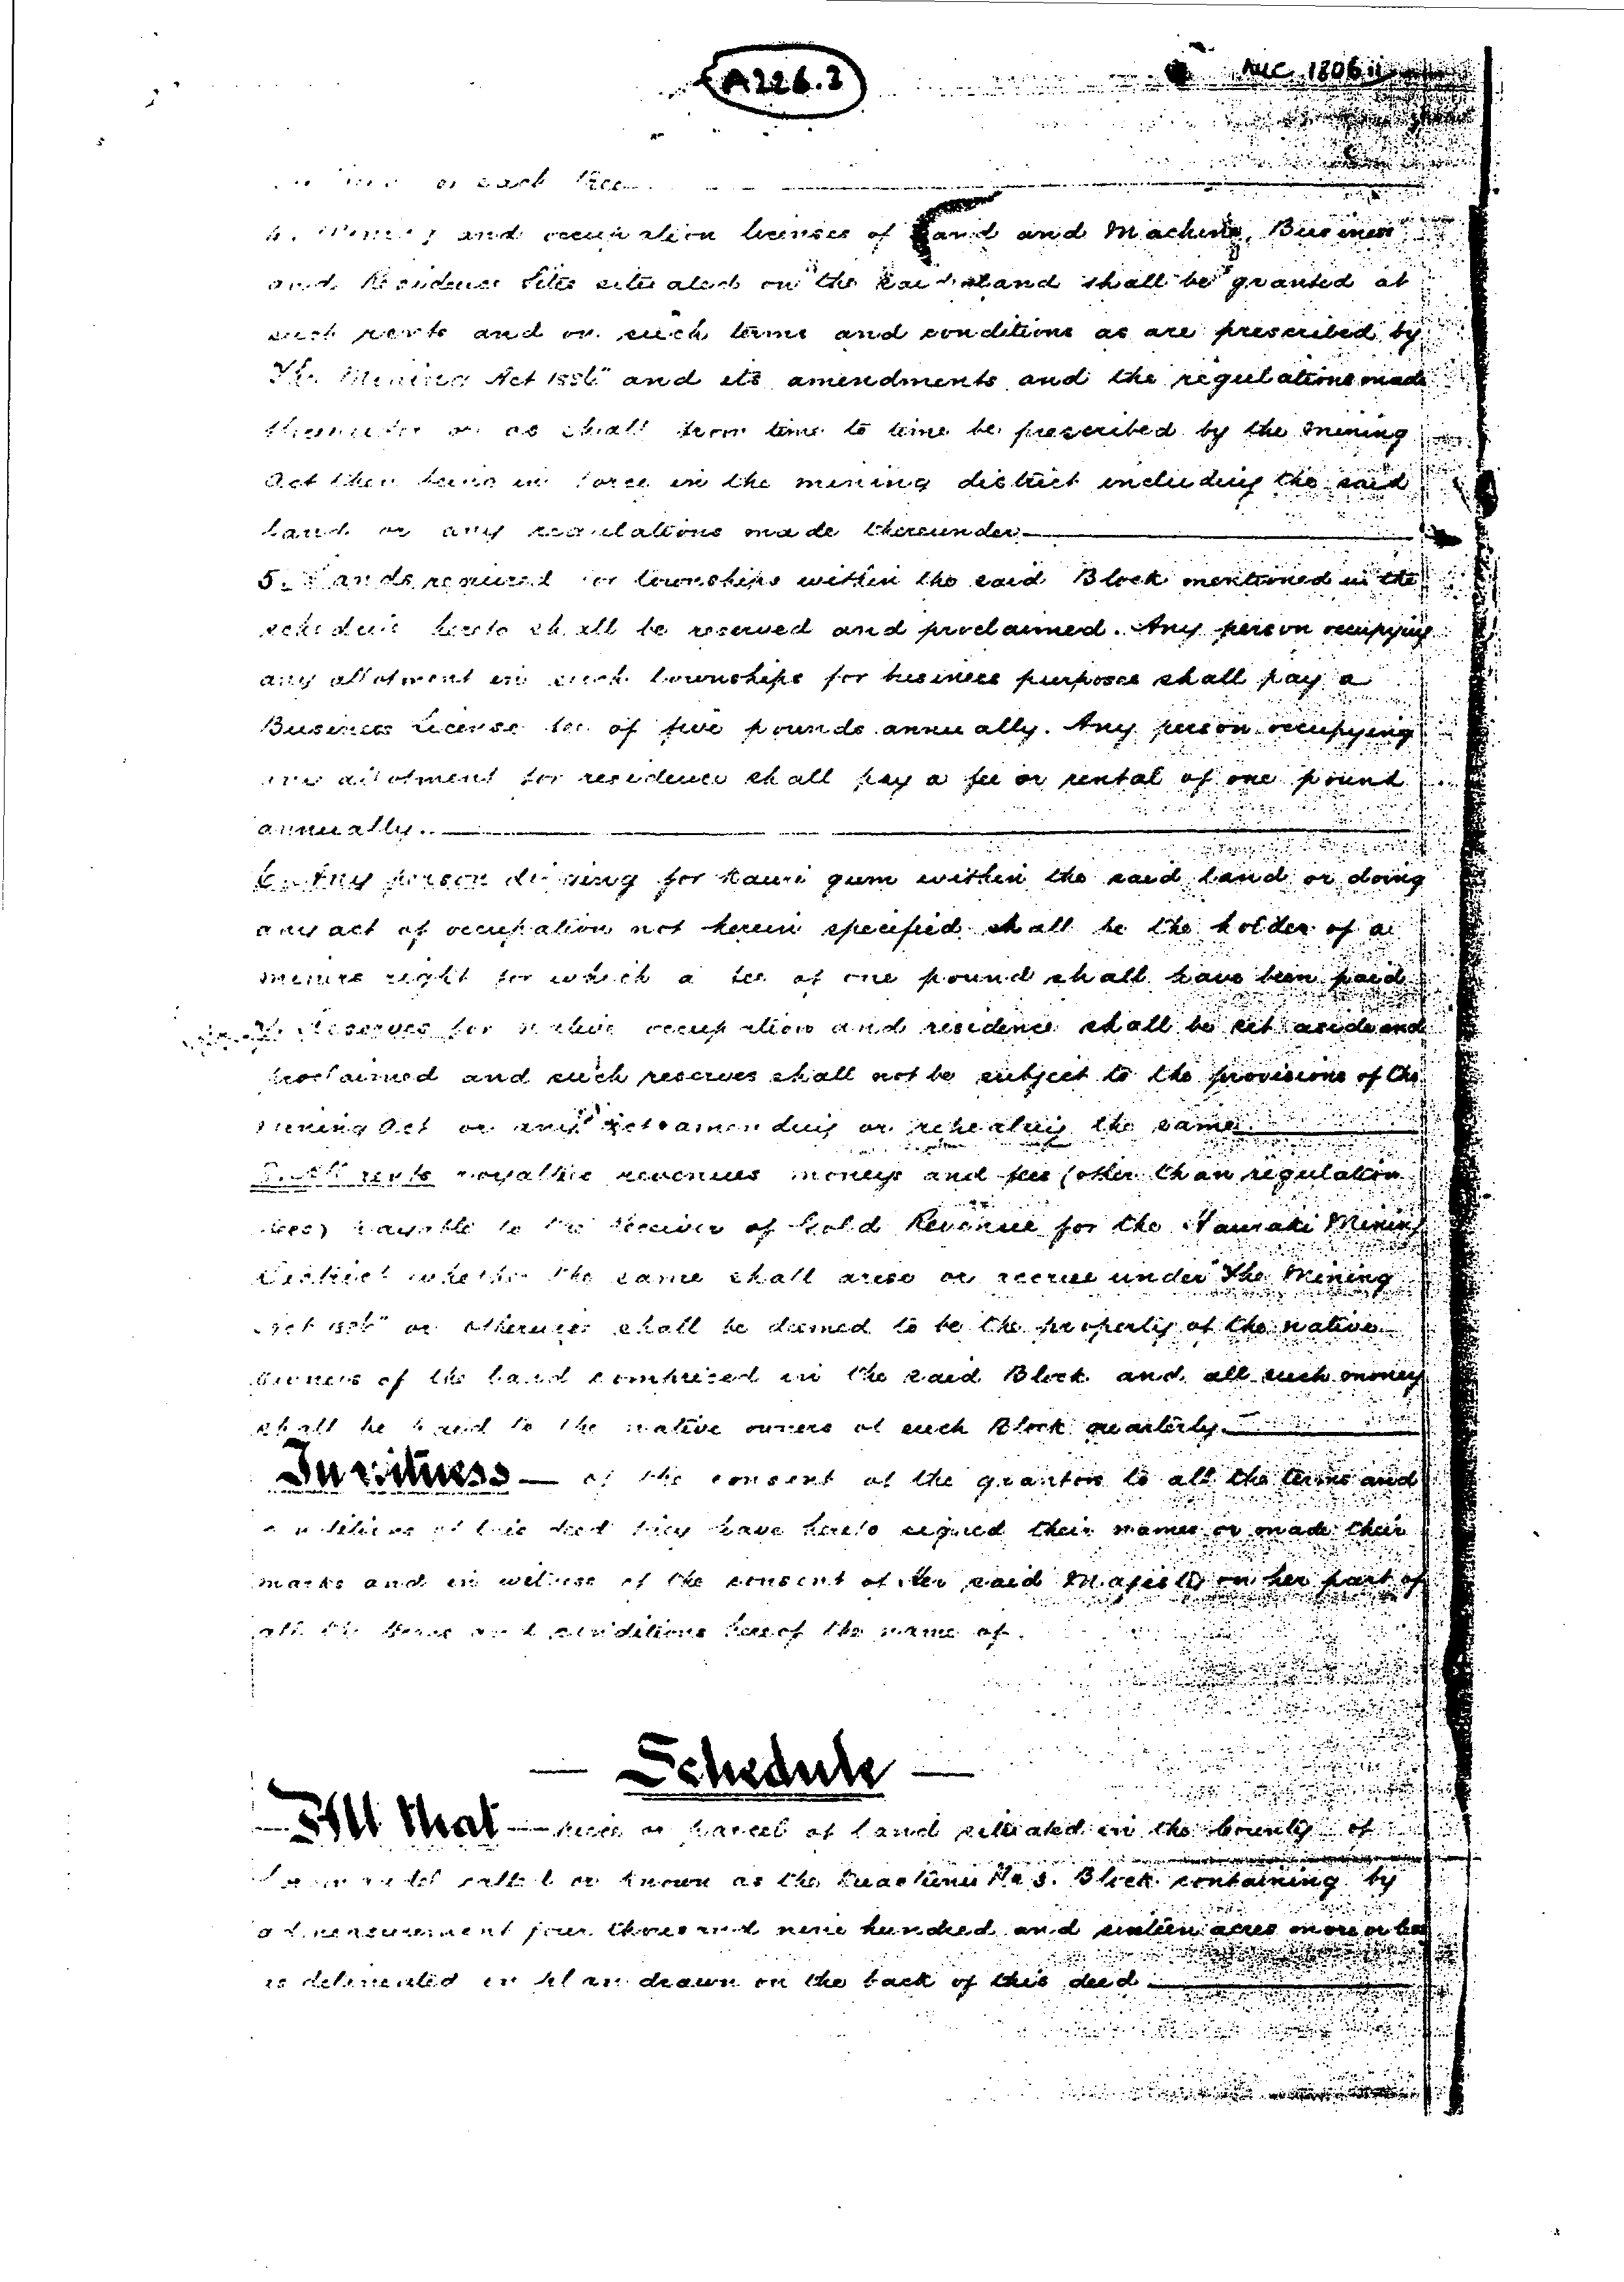 A226.3
AUC 1806
each tree
and occupation licenses of Land and Machine, Business
and Residence Sites situated on the said land shall be granted at
such rents and on such terms and conditions as are prescribed by
The Mining Act 1886" and its amendments and the regulations made
thereunder or as shall from time to time be prescribed by the Mining
Act then being in force in the mining district including the said
land or any regulations made thereunder
5. Lands required for townships within the said Block mentioned in the
schedule hereto shall be reserved and proclaimed. Any person occupying
any allotment in such townships for business purposes shall pay a
Business License fee of five pounds annually. Any person occupying
any allotment for residence shall pay a fee or rental of one pound
annually.
6. Any person digging for Kauri gum within the said land or doing
any act of occupation not herein specified shall be the holder of a
miners right for which a fee of one pound shall have been paid
7. Reserves for native occupation and residence shall be set aside and
proclaimed and such reserves shall not be subject to the provisions of the
Mining Act or any Acts amending or repealing the same
8. All rents royalties revenues moneys and fees (other than regulation
fees) payable to the Receiver of Gold Revenue for the Hauraki Mining
District whether the same shall arise or accrue under "The Mining
Act 1886" or otherwise shall be deemed to be the property of the native
owners of the land comprised in the said Block and all such money
shall be paid to the native owners of such Block quarterly.
In witness of the consent of the grantors to all the terms and
conditions of this deed they have hereto signed their names or made their
marks and in witness of the consent of Her said Majesty on her part of
all the terms and conditions hereof the name of.
Schedule
All that piece or parcel of land situated in the County of
Coromandel called or known as the No 3. Block containing by
admeasurement four thousand nine hundred and sixteen acres more or less
as delineated in plan drawn on the back of this deed